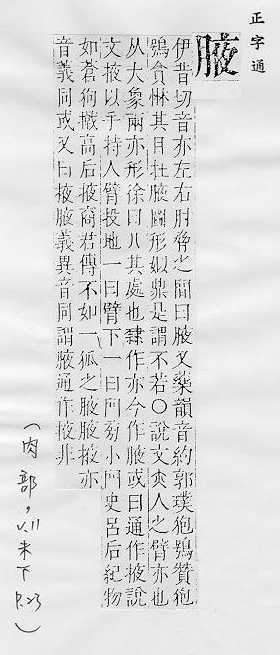 正字通
腋
伊昔切音亦左右肘脅之間曰腋又藥韻音約郭璞狍鴞贊狍
鴞貪惏其目在腋圖形妙鼎是謂不若○說文亦人之臂亦也
从大象兩亦形徐曰八其處也隸作亦今作腋或曰通作掖說
文掖以手持人臂投地一曰臂下一曰門旁小門史呂后紀物
如蒼狗撠高后掖商君傳不如一狐之腋腋掖亦
音義同或又曰掖腋義異音同謂腋通作掖非
（肉部，V.11未下P.23）